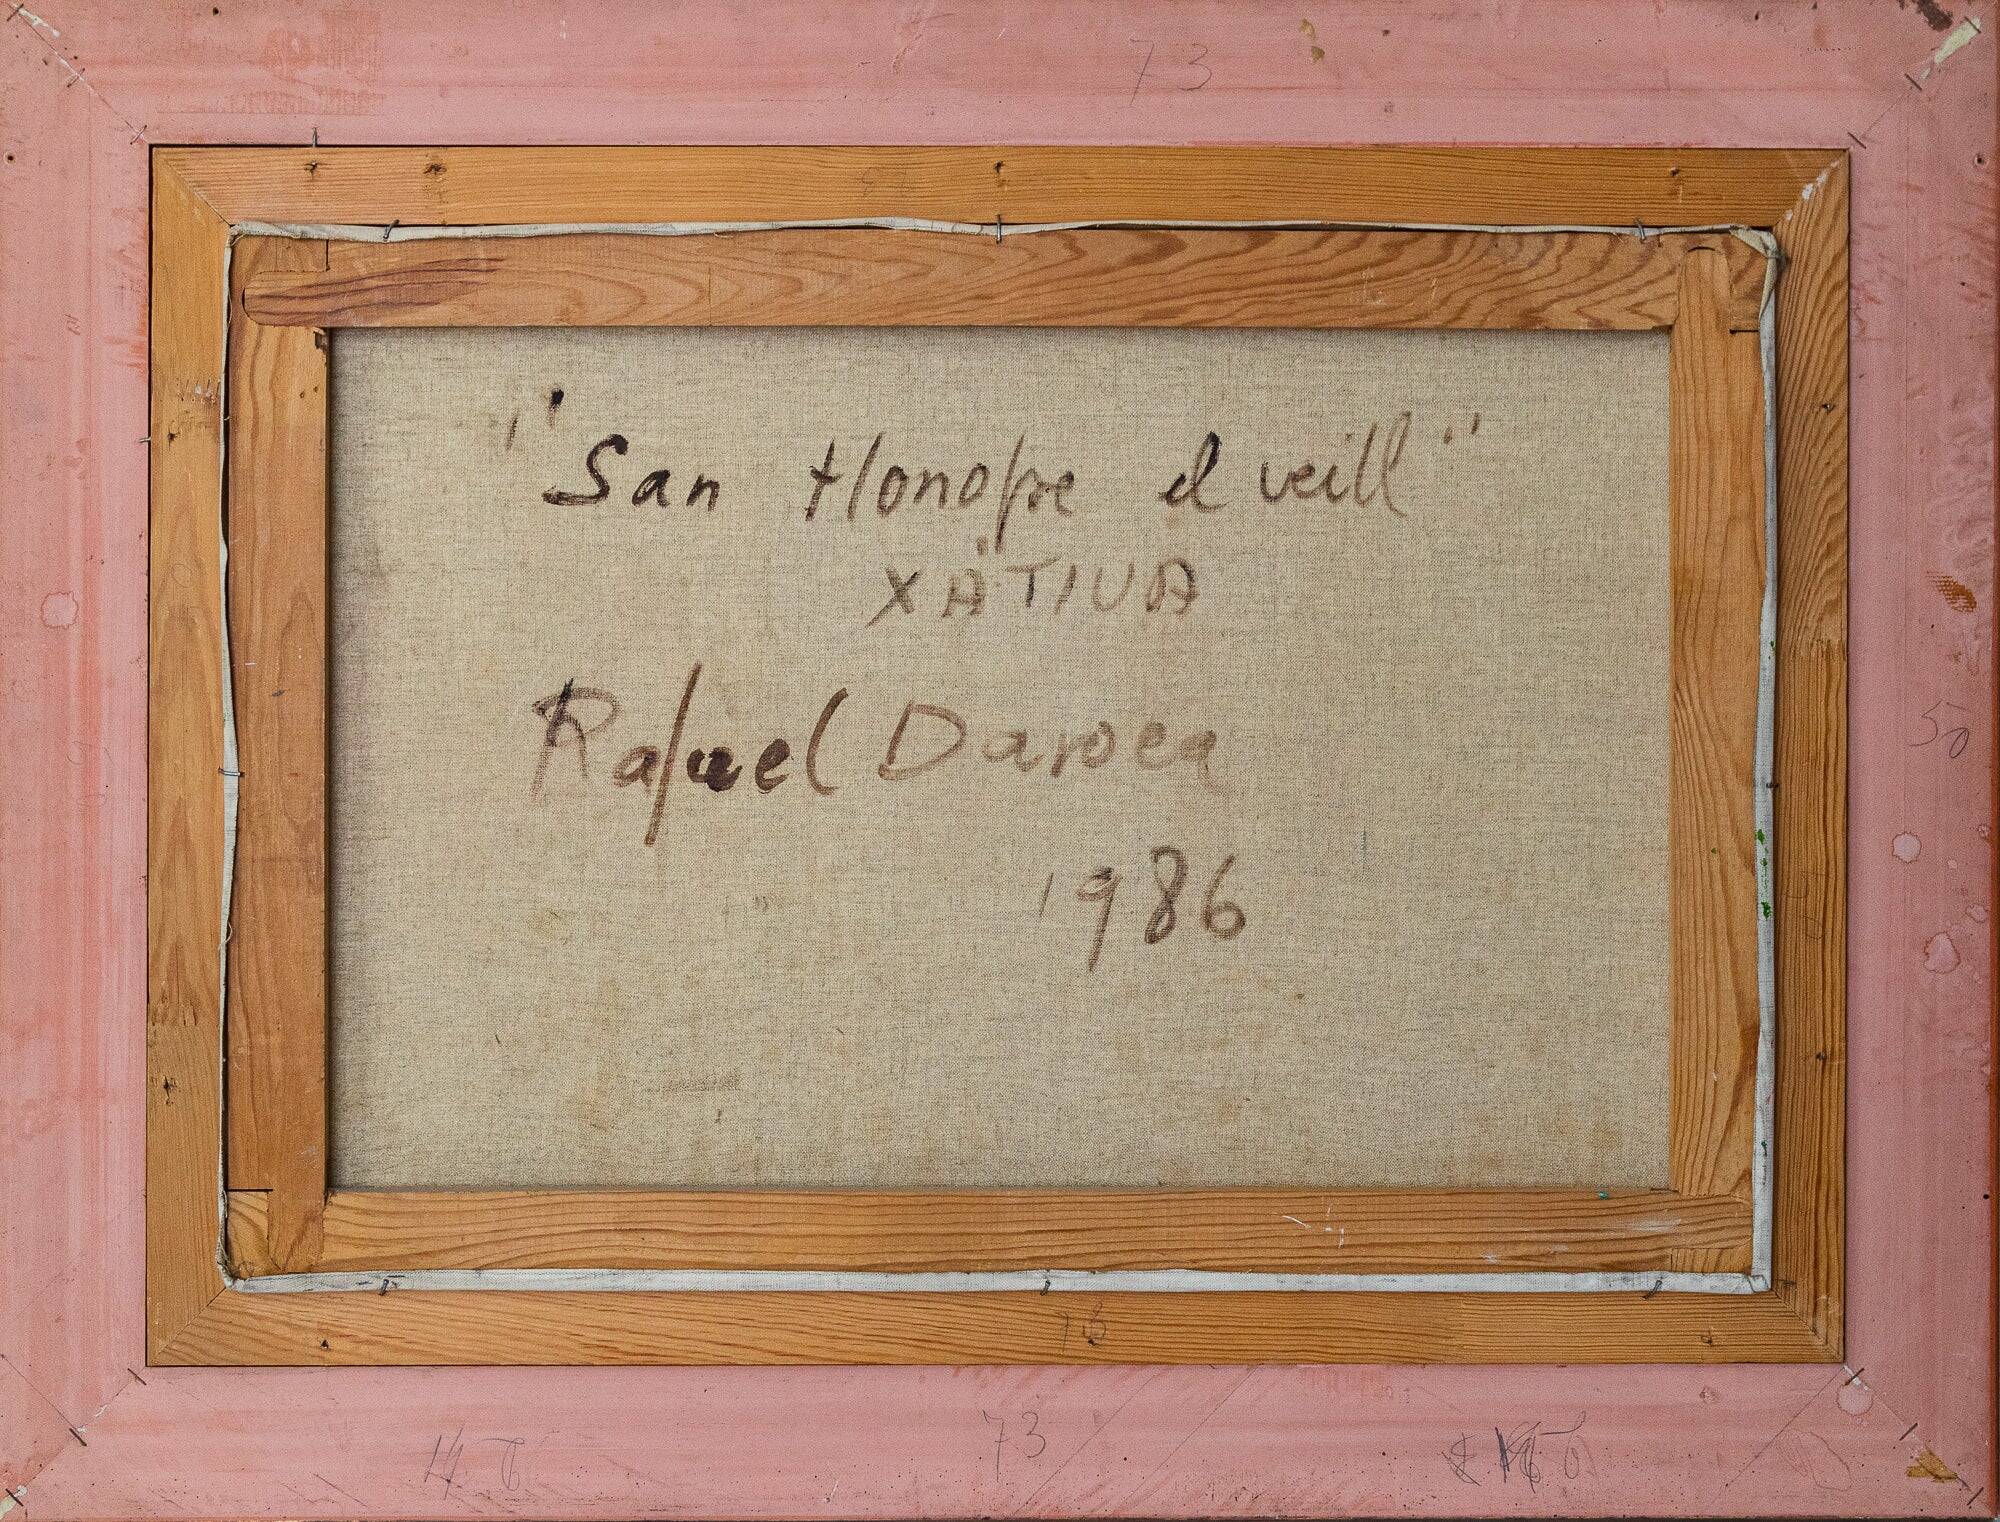 73
"San Honofre el veill"
XÀTIVA
Rafael Daroca
1986
50
73
73